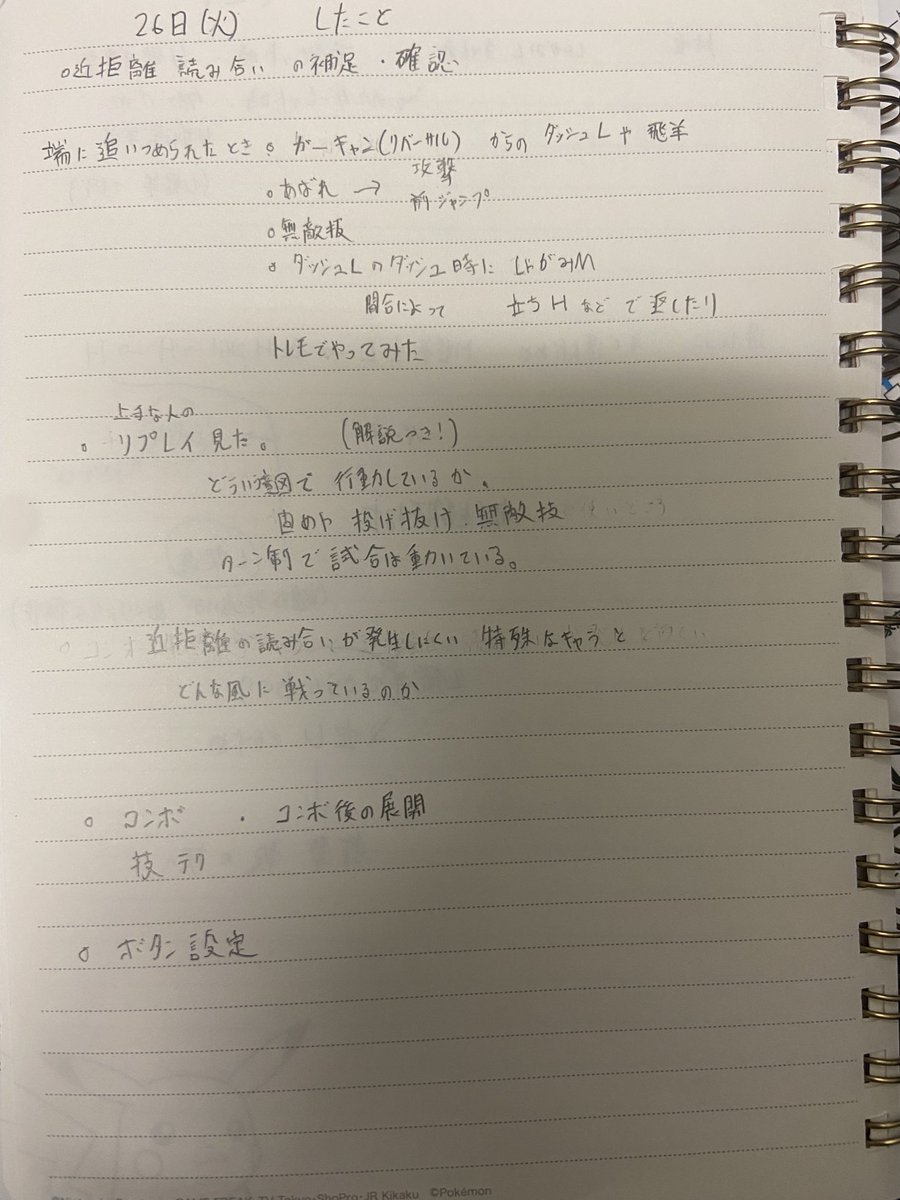 26日(火) したこと
○近拒離 読み合い の補足・確認
端に追いつめられたとき。ガーキャン(リバーサル) からの ダッシュLや 飛羊
○あばれ → 攻撃
前ジャンプ
○無敵技
○ダッシュLのダッシュ時に しゃがみM
間合によって 立ちHなどで返したり
トレモでやってみた
上手な人の
○ リプレイ見た。 (解説つき!)
どういう意図で 行動しているか。
固めや 投げ抜け 無敵技 使いどころ
ターン制で試合は動いている。
近拒離の読み合いが発生しにくい 特殊なキャラと
どんな風に 戦っているのか
○ コンボ ・ コンボ後の展開
技 テク
○ ボタン設定
TV Tokyo・ShoPro・JR Kikaku ©Pokémon